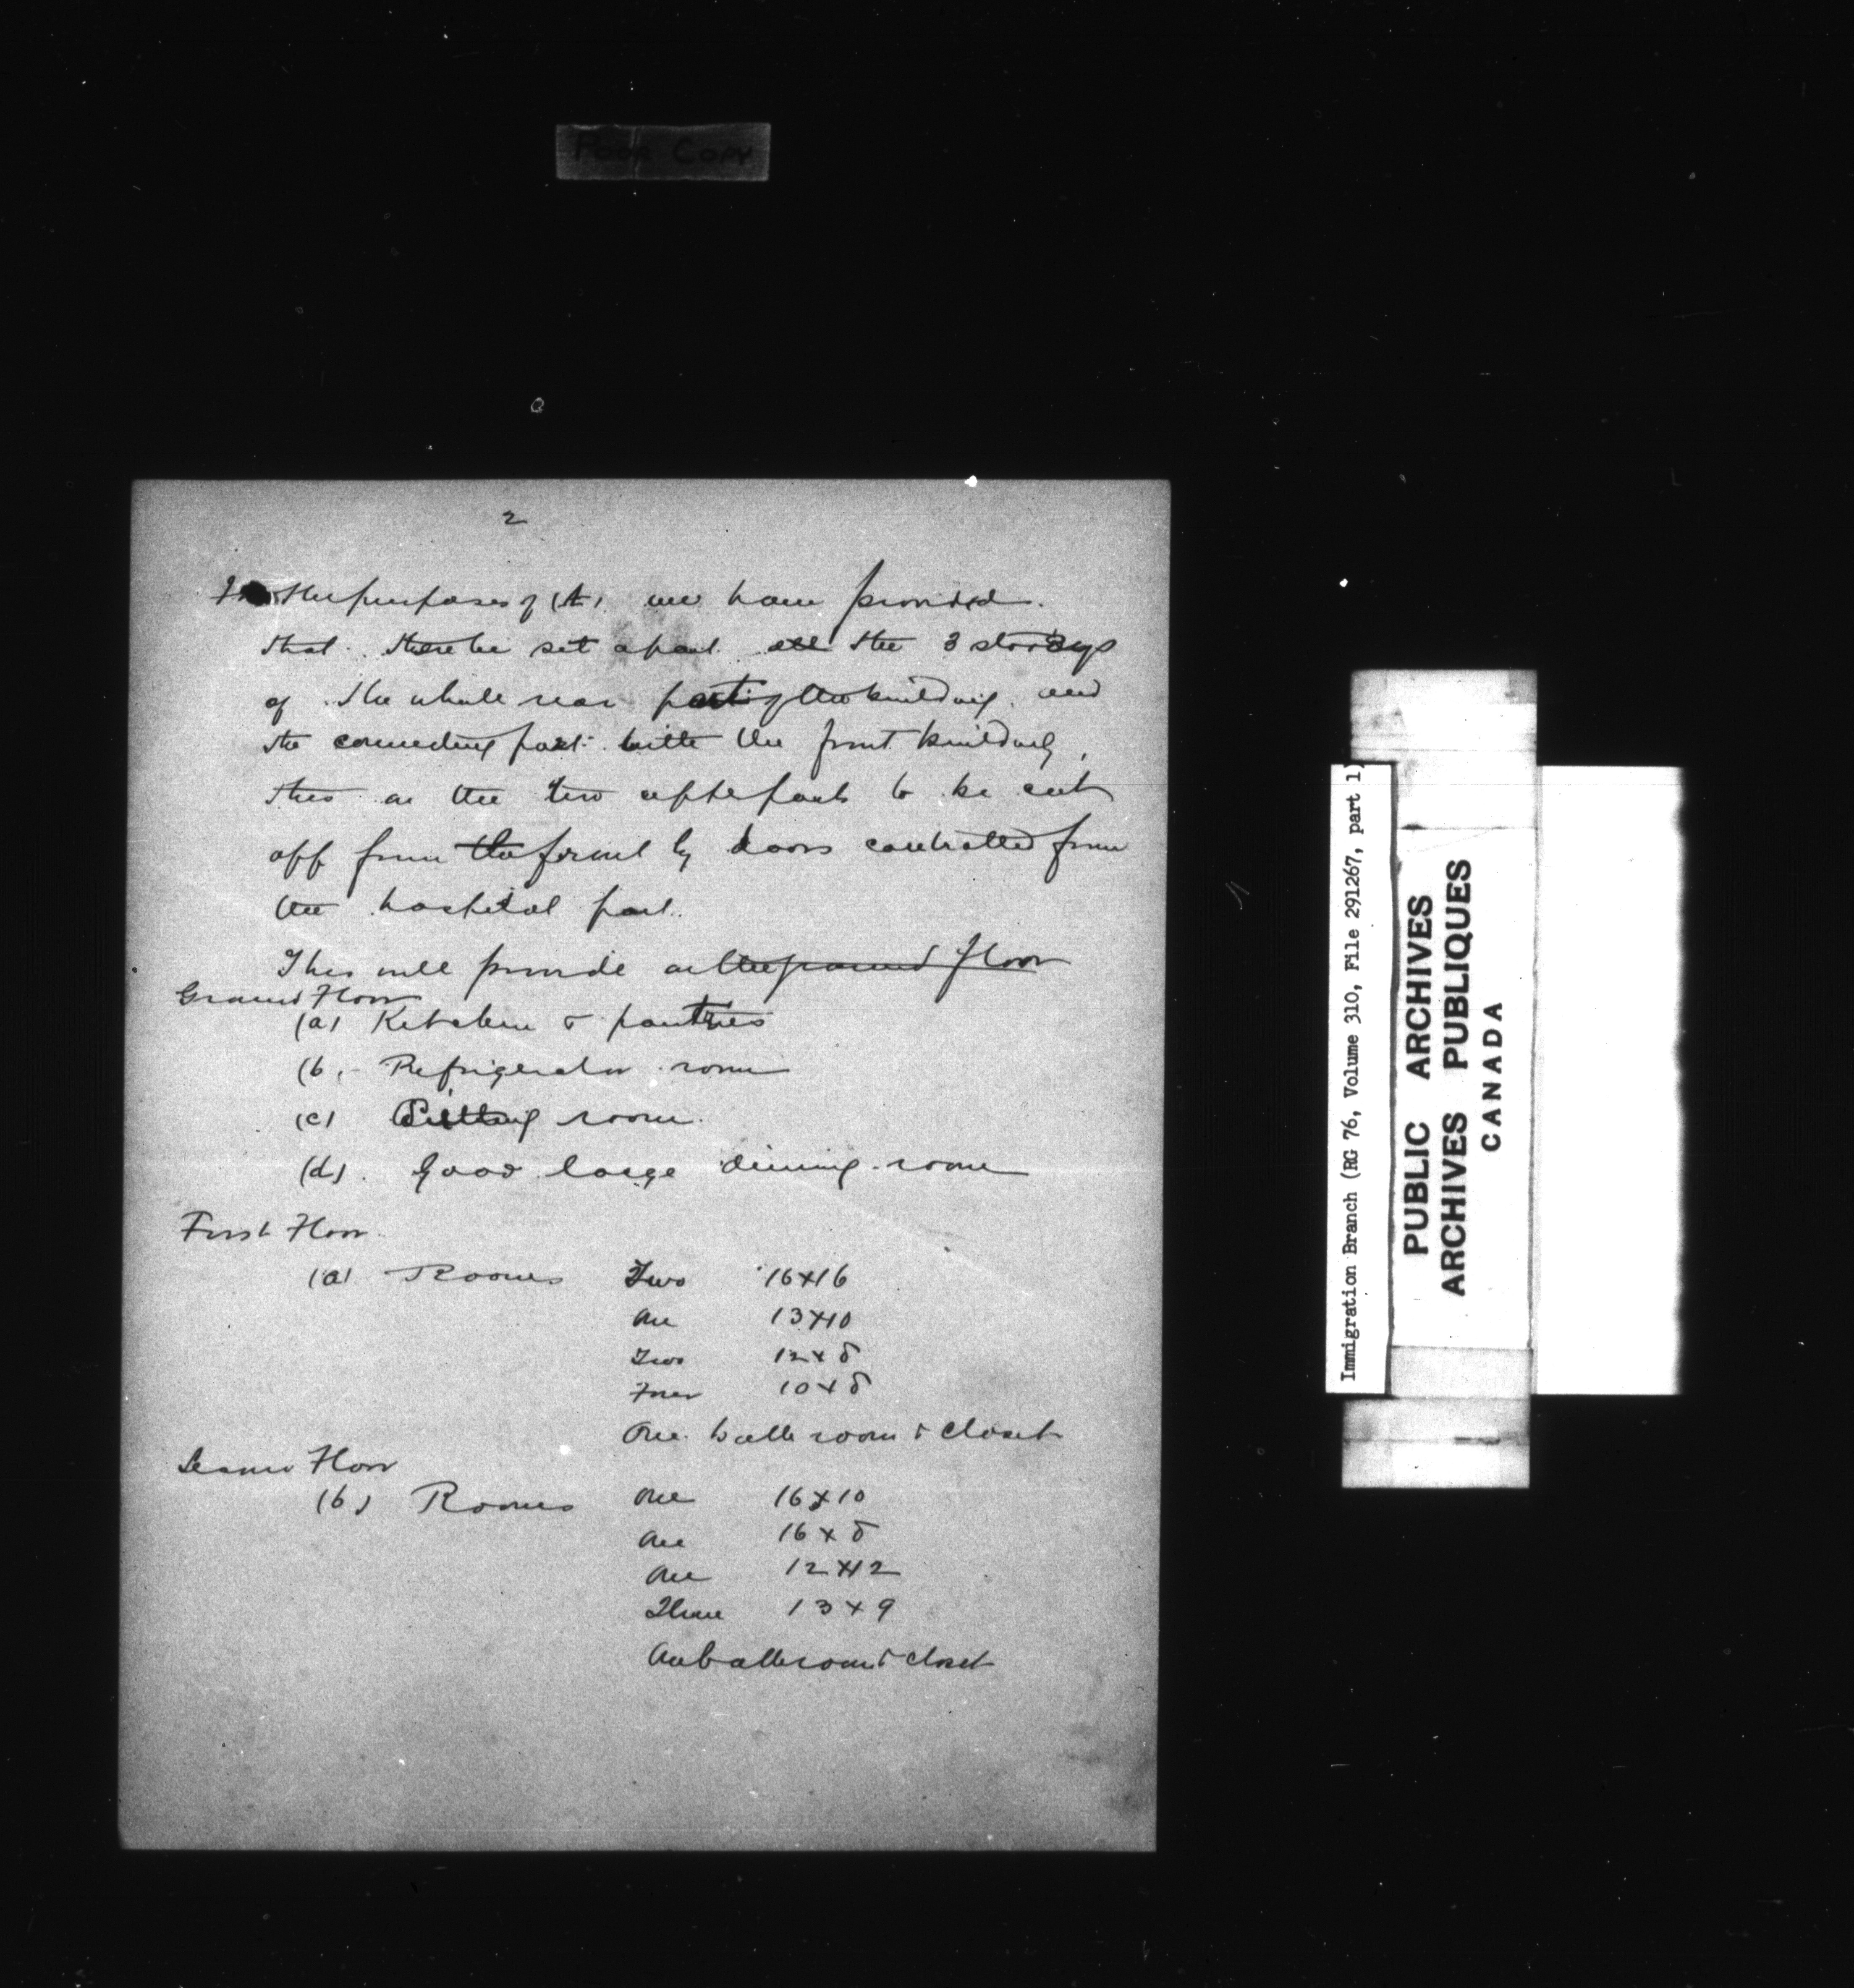 Poor Copy
2
For the purposes of (A) we have provided
that there be set apart all the 3 storeys
of the whole rear part of the building and
the connecting part with the front building,
this on the two upper parts to be cut
off from the front by doors controlled from
the hospital part.
This will provide on the ground floor
Ground Floor
(a) Kitchen & pantries
(b) Refrigerator room
(c) Sitting room.
(d) Good large dining room
First Floor.
(a) Rooms Two 16x16
One 13x10
Two 12x8
Four 10x8
One bath room & closet
Second Floor
(b) Rooms One 16x10
One 16x8
One 12x12
Three 13x9
One bathroom & closet
Immigration Branch (RG 76, Volume 310, File 291267, part 1)
PUBLIC ARCHIVES
ARCHIVES PUBLIQUES
CANADA